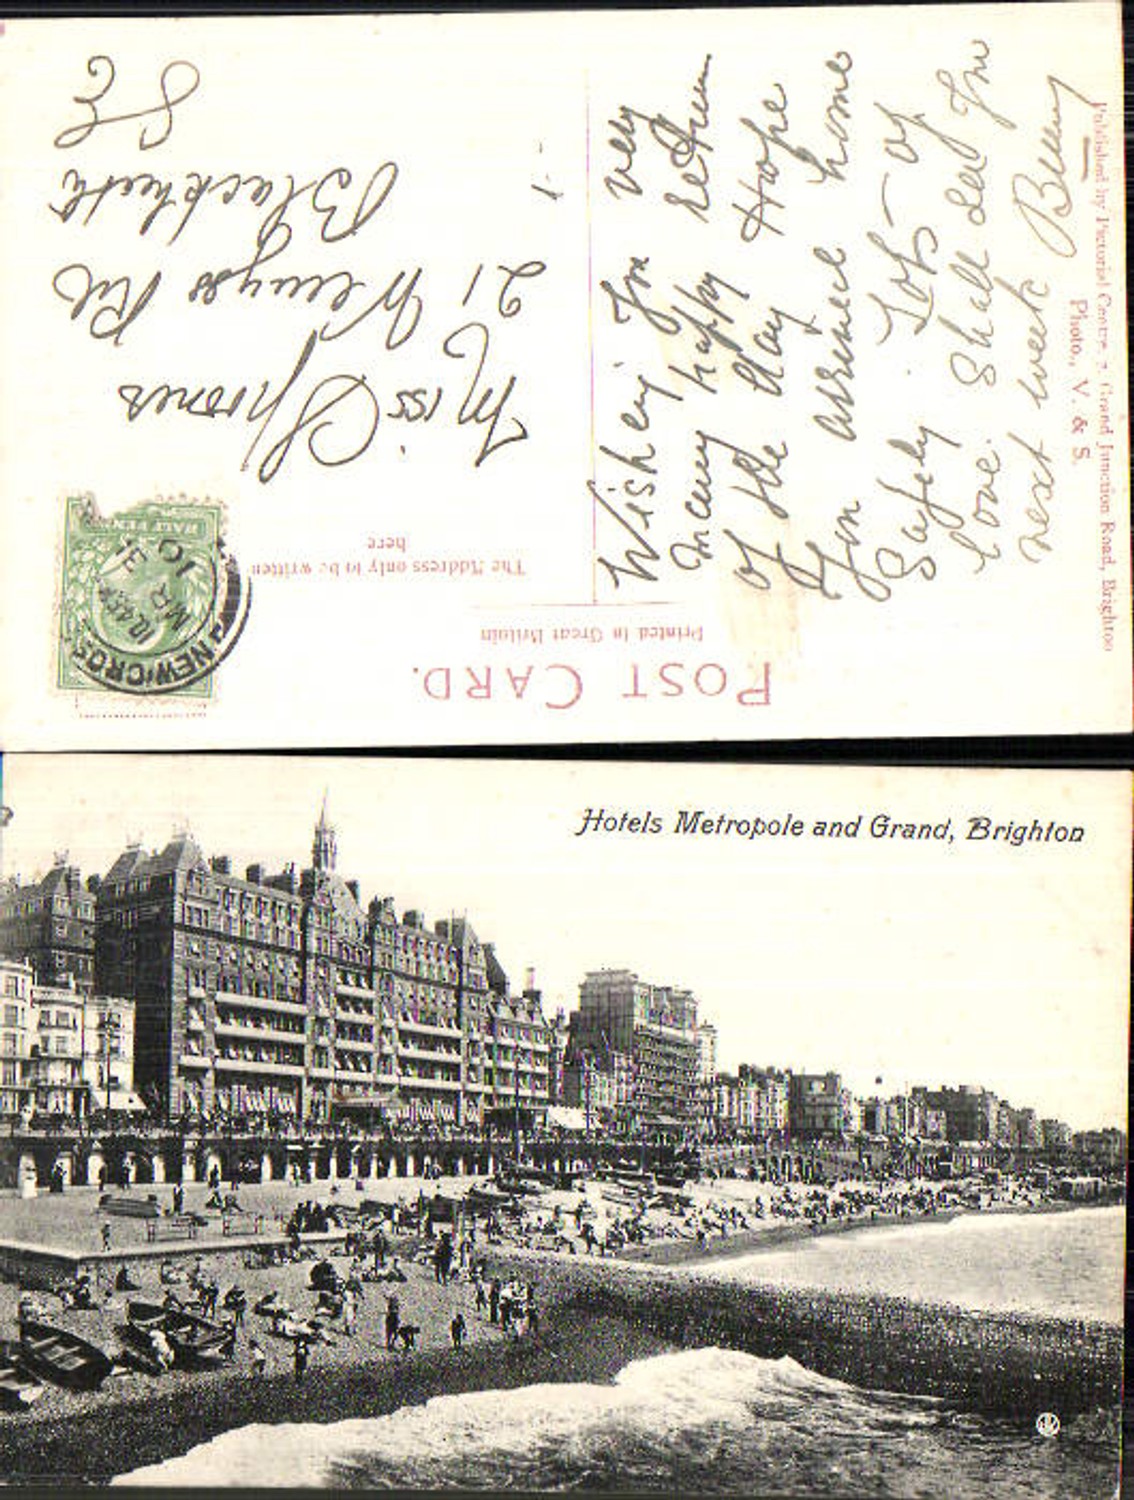 POST CARD.
Printed in Great Britain
The Address only to be written
here
HALF PENNY
NEW CROSS
10.45 PM
MR 31
10
Miss Spooner
21 Wemyss Rd
Blackheath
SE
Wishing You very
many happy return
of the day Hope
You arrived home
Safely. Lots of
love. Shall see You
next week Benny
Published by Pictorial Centre, 7, Grand Junction Road, Brighton
Photo., V. & S.
Hotels Metropole and Grand, Brighton